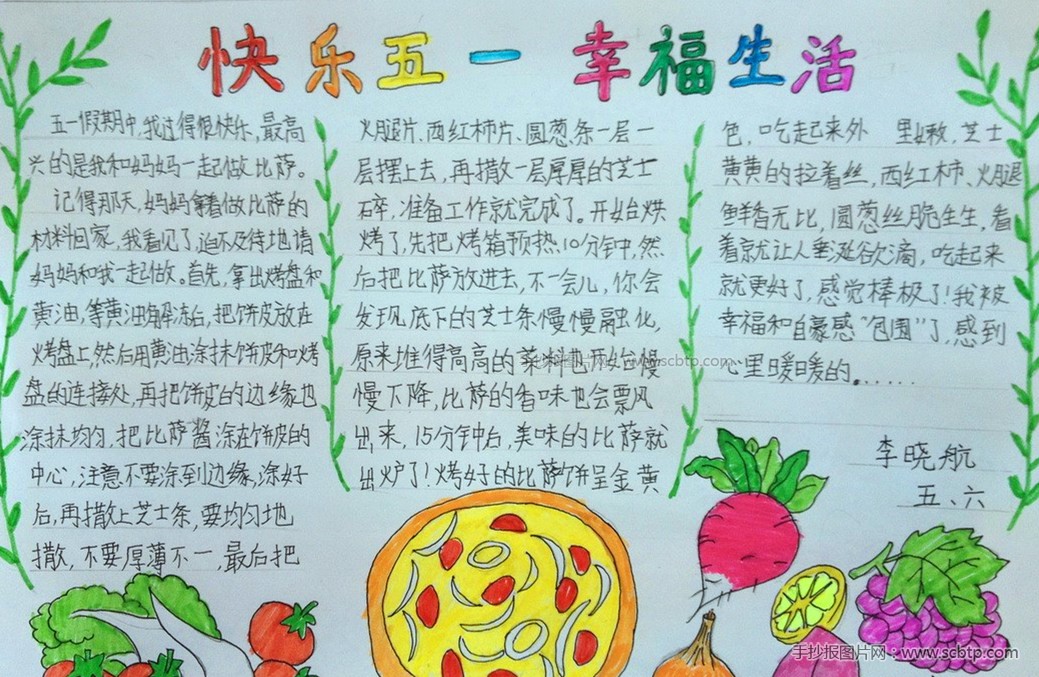 快乐五一 幸福生活
五一假期中,我过得很快乐,最高
兴的是我和妈妈一起做比萨。
记得那天,妈妈拿着做比萨的
材料回家,我看见了,迫不及待地请
妈妈和我一起做。首先,拿出烤盘和
黄油,等黄油解冻后,把饼皮放在
烤盘上,然后用黄油涂抹饼皮和烤
盘的连接处,再把饼皮的边缘也
涂抹均匀,把比萨酱涂在饼皮的
中心,注意不要涂到边缘,涂好
后,再撒上芝士条,要均匀地
撒,不要厚薄不一,最后把
火腿片、西红柿片、圆葱条一层一
层摆上去,再撒一层厚厚的芝士
碎,准备工作就完成了。开始烘
烤了,先把烤箱预热10分钟,然
后把比萨放进去,不一会儿,你会
发现底下的芝士条慢慢融化,
原来堆得高高的菜料也开始慢
慢下降,比萨的香味也会票风
出来,15分钟后,美味的比萨就
出炉了!烤好的比萨饼呈金黄
色,吃起来外 里嫩,芝士
黄黄的拉着丝,西红柿、火腿
鲜香无比,圆葱丝脆生生,看
着就让人垂涎欲滴,吃起来
就更好了,感觉棒极了!我被
幸福和自豪感“包围”了,感到
心里暖暖的......
李晓航
五、六
手抄报图片网:www.scbtp.com
手抄报图片网:www.scbtp.com